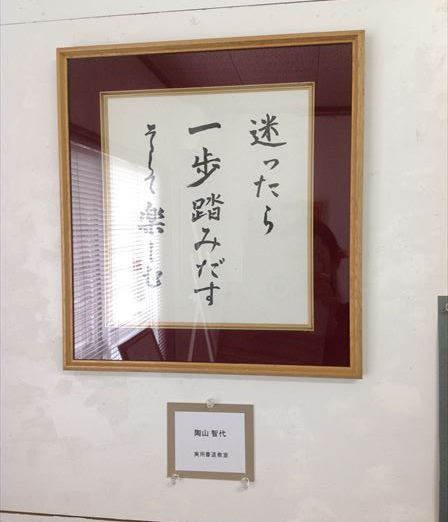 迷ったら
一歩踏みだす
そして楽しむ
陶山 智代
実用書道教室